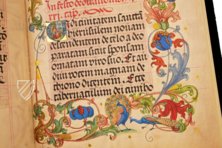 In dedicatione
cap.
Vidi civitatem sanctā
hierusalem novam
descendentem de celo a
paratam sicut sponsam
ornatam viro suo. Et au
divi vocem magnam de
throno dicentem. Ecce
tabernaculum dei cum ho